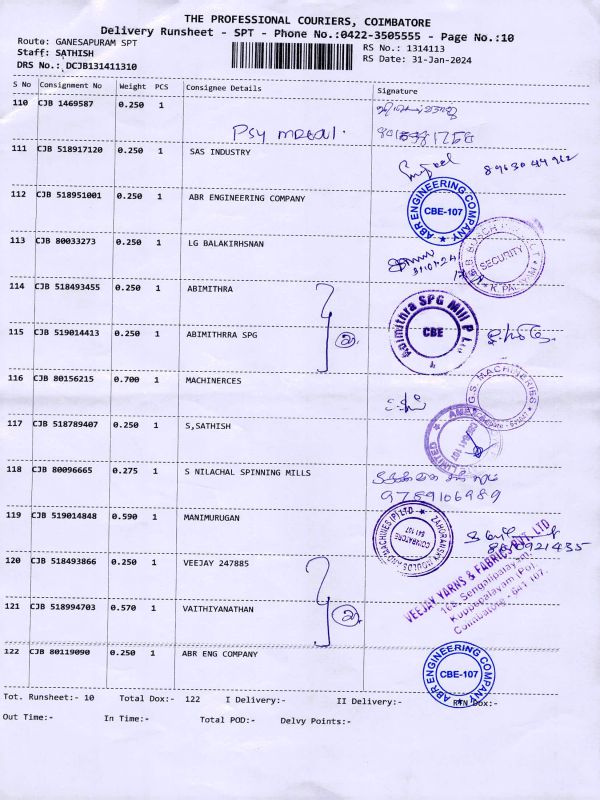 THE PROFESSIONAL COURIERS, COIMBATORE
Delivery Runsheet - SPT - Phone No.:0422-3505555 - Page No.:10
Route: GANESAPURAM SPT
Staff: SATHISH
DRS No.: DCJB131411310
RS No.: 1314113
RS Date: 31-Jan-2024
S No Consignment No Weight PCS Consignee Details Signature
110 CJB 1469587 0.250 1
111 CJB 518917120 0.250 1 SAS INDUSTRY
112 CJB 518951001 0.250 1 ABR ENGINEERING COMPANY
ABR ENGINEERING COMPANY
CBE-107
113 CJB 80033273 0.250 1 LG BALAKIRHSNAN
31.01.24
SECURITY
114 CJB 518493455 0.250 1 ABIMITHRA
Abimithra SPG Mill P Ltd
CBE
115 CJB 519014413 0.250 1 ABIMITHRRA SPG
2
116 CJB 80156215 0.700 1 MACHINERCES
G.S. MACHINERIES
117 CJB 518789407 0.250 1 S,SATHISH
LIMITED
118 CJB 80096665 0.275 1 S NILACHAL SPINNING MILLS
9789106989
119 CJB 519014848 0.590 1 MANIMURUGAN
ZAHORANSKY MOULDS AND MACHINES (P) LTD
COIMBATORE
641 107
120 CJB 518493866 0.250 1 VEEJAY 247885
VEEJAY YARNS & FABRICS PVT. LTD
168, Sengalipalayam
Kuppepalayam (Po),
Coimbatore - 641 107.
121 CJB 518994703 0.570 1 VAITHIYANATHAN
2
122 CJB 80119090 0.250 1 ABR ENG COMPANY
ABR ENGINEERING COMPANY
CBE-107
Tot. Runsheet:- 10 Total Dox:- 122 I Delivery:- II Delivery:- RTN Dox:-
Out Time:- In Time:- Total POD:- Delvy Points:-